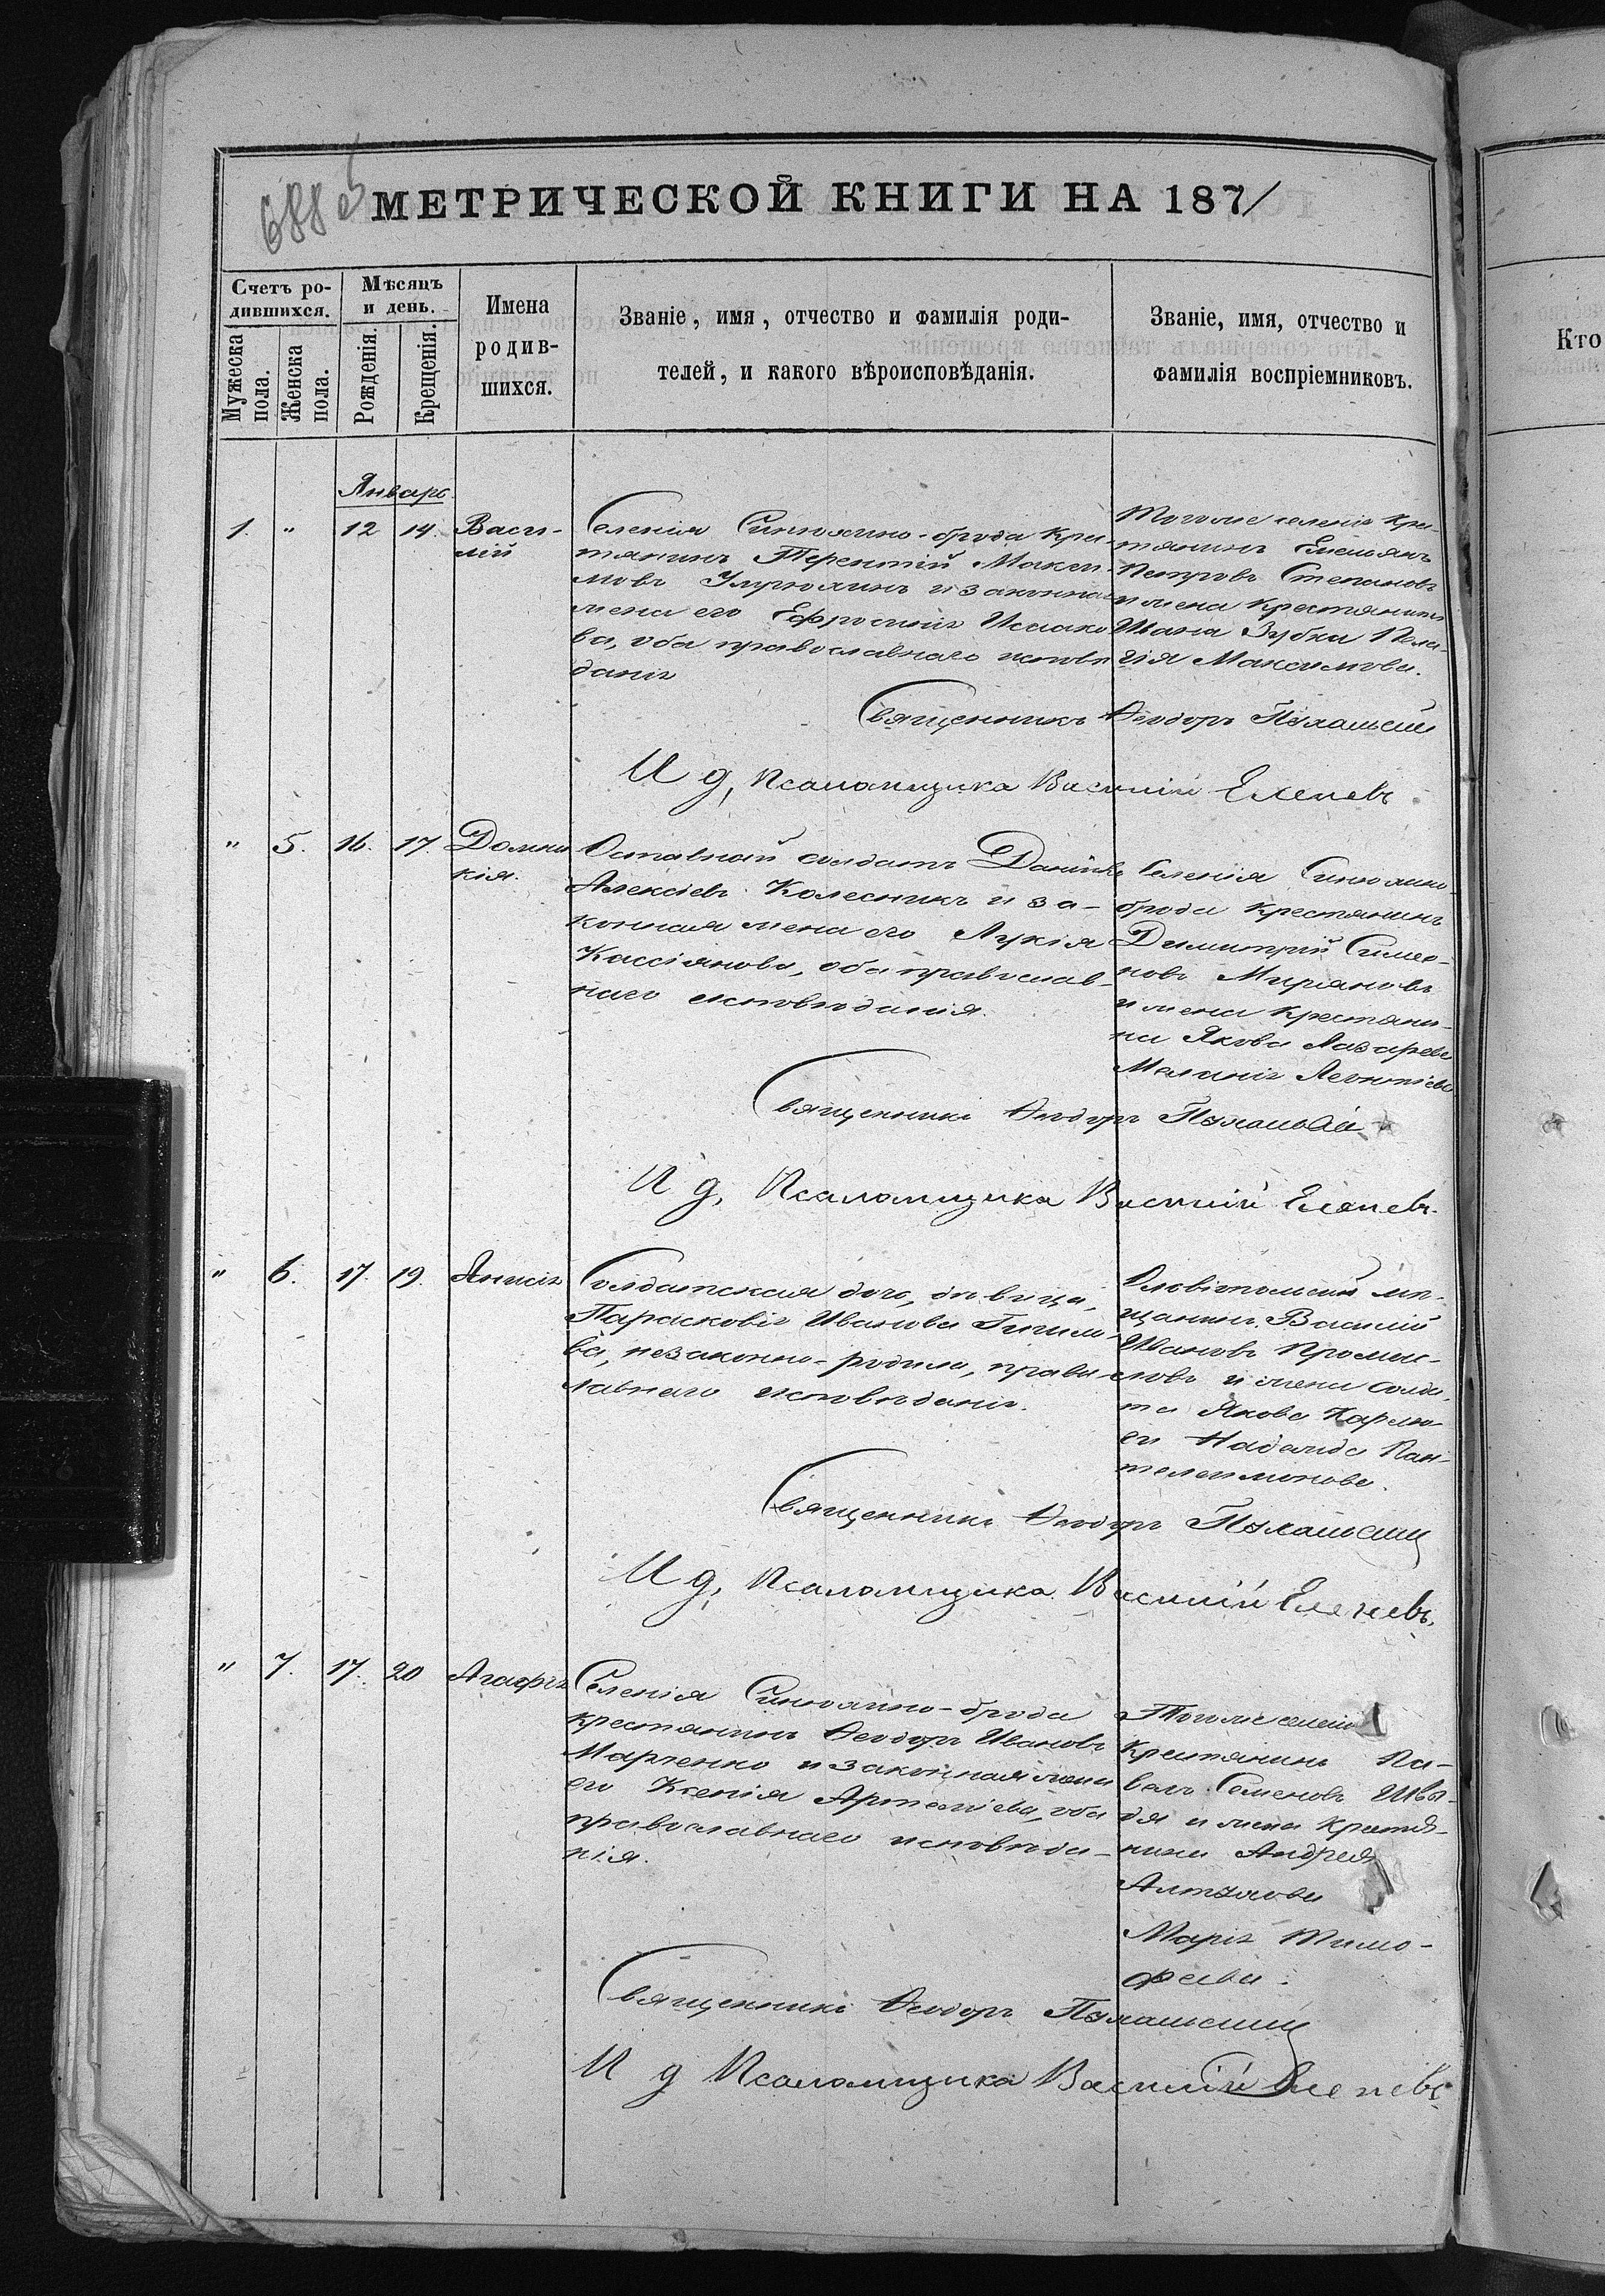 688 об
МЕТРИЧЕСКОЙ КНИГИ НА 1871
Счетъ ро-
дившихся.
Мужеска
пола.
Женска
пола.
Мѣсяцъ
и день.
Рожденія.
Крещенія.
Имена
родив-
шихся.
Званіе, имя, отчество и фамилія роди-
телей, и какого вѣроисповѣданія.
Званіе, имя, отчество и
фамилія воспріемниковъ.
Кто
Январь
1. " 12 14. Васи-
лій
Селенія Синюхино-брода Крес-
тянинъ Терентій Макси-
мовъ и законная
жена его Ефросинія Исаако
ва, оба православнаго исповѣ
данія
Тогоже селенія Крес-
тянинъ Емельянъ
Петровъ Степановъ
и жена Крестянина
Ивана Зубка Пела-
гія Максимова.
Священникъ Ѳеодоръ
И д, Псаломщика Василій Еленевъ
" 5. 16. 17. Домни
кія.
Отставной солдатъ Даніилъ
Алексіевъ Колесникъ и за-
конная жена его Лукія
Кассіянова, оба православ-
наго исповѣданія.
Селенія Синюхино-
брода крестянинъ
Димитрій Симео-
новъ Миріановъ
и жена крестяни-
на Якова Лазарева
Меланія Леонтіева
Священникъ Ѳеодоръ
И д, Псаломщика Василій Еленевъ.
" 6. 17. 19. Анисія
Солдатская дочь, дѣвица,
Параскевія Иванова
ва, незаконно-родила, правос
лавнаго исповѣданія.
мѣ-
щанинъ Василій
Ивановъ
и жена солда
та Якова
Надежда Пан-
телеимонова.
Священникъ Ѳеодоръ
И д, Псаломщика Василій Еленевъ.
" 7. 17. 20 Агафія
Селенія Синюхино-брода
крестянинъ Ѳеодоръ Ивановъ
Марченко и законная жена
его Ксенія Артеміева, оба
православнаго исповѣда-
нія.
Тогоже селенія
Крестянинъ Па-
велъ Семеновъ Швы-
дя и жена Крестя-
нина Андрея
Алтухова
Марія Тимо-
феева.
Священникъ Ѳеодоръ
И д Псаломщика Василій Еленевъ